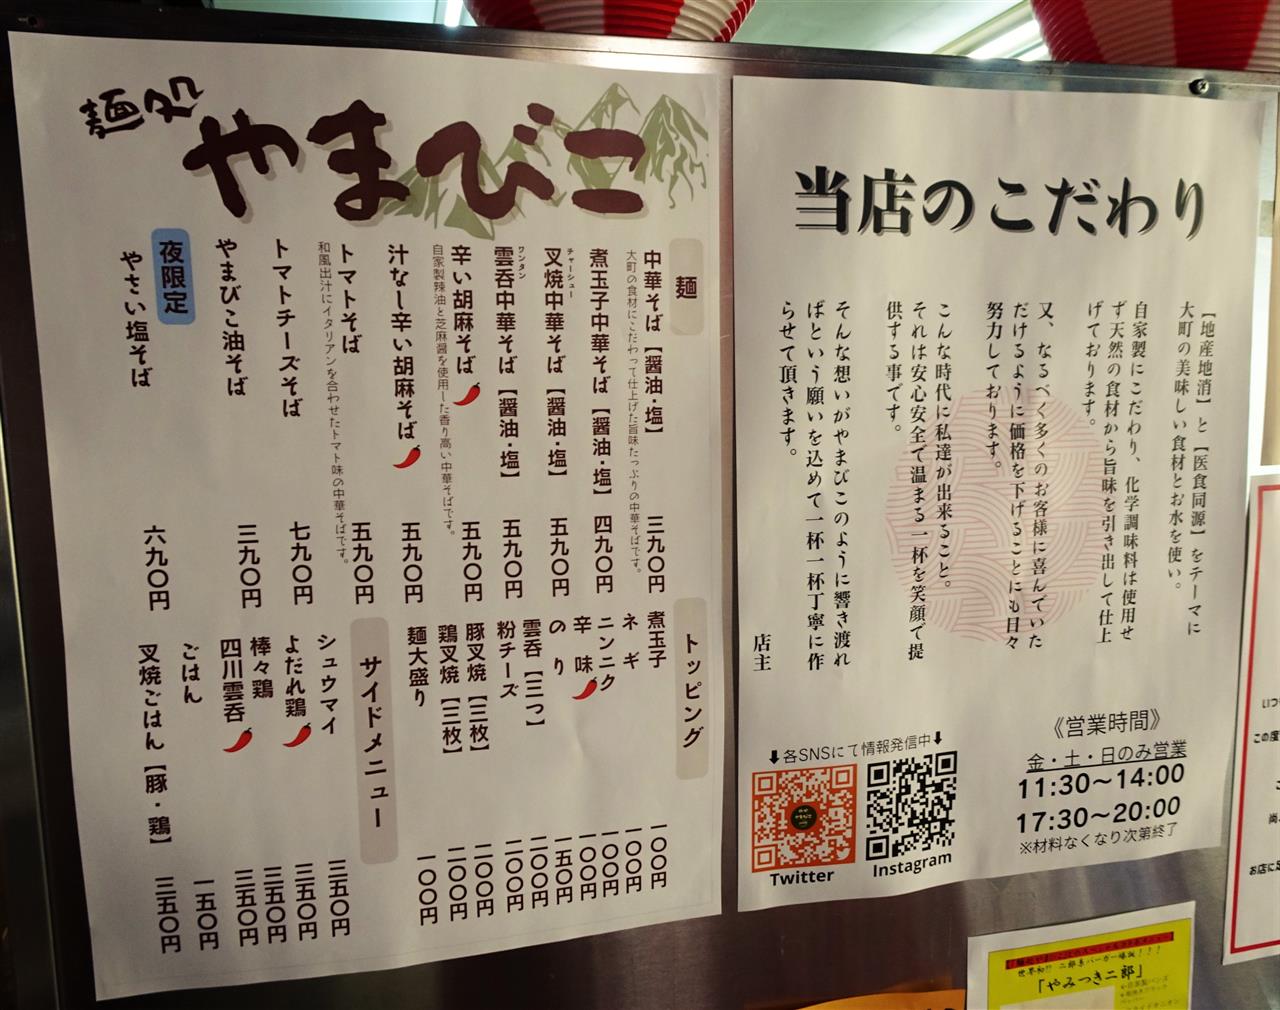 麺処
やまびこ
麺
中華そば【醤油・塩】 三九〇円
大町の食材にこだわって仕上げた旨味たっぷりの中華そばです。
煮玉子中華そば【醤油・塩】 四九〇円
チャーシュー
叉焼中華そば【醤油・塩】 五九〇円
ワンタン
雲呑中華そば【醤油・塩】 五九〇円
辛い胡麻そば 五九〇円
自家製辣油と芝麻醤を使用した香り高い中華そばです。
汁なし辛い胡麻そば 五九〇円
トマトそば 五九〇円
和風出汁にイタリアンを合わせたトマト味の中華そばです。
トマトチーズそば 七九〇円
やまびこ油そば 三九〇円
夜限定
やさい塩そば 六九〇円
トッピング
煮玉子 一〇〇円
ネギ 一〇〇円
ニンニク 一〇〇円
辛味 一〇〇円
のり 一五〇円
雲呑【三つ】 二〇〇円
粉チーズ 二〇〇円
豚叉焼【三枚】 二〇〇円
鶏叉焼【三枚】 二〇〇円
麺大盛り 一〇〇円
サイドメニュー
シュウマイ 三五〇円
よだれ鶏 三五〇円
棒々鶏 三五〇円
四川雲呑 三五〇円
ごはん 一五〇円
叉焼ごはん【豚・鶏】 三五〇円
当店のこだわり
【地産地消】と【医食同源】をテーマに
大町の美味しい食材とお水を使い。
自家製にこだわり、化学調味料は使用せ
ず天然の食材から旨味を引き出して仕上
げております。
又、なるべく多くのお客様に喜んでいた
だけるように価格を下げることにも日々
努力しております。
こんな時代に私達が出来ること。
それは安心安全で温まる一杯を笑顔で提
供する事です。
そんな想いがやまびこのように響き渡れ
ばという願いを込めて一杯一杯丁寧に作
らせて頂きます。
店主
《営業時間》
金・土・日のみ営業
11:30～14:00
17:30～20:00
※材料なくなり次第終了
⬇各SNSにて情報発信中⬇
Twitter
Instagram
いつ
この度
お店に足
世界初!? 二郎系バーガー爆誕！！！
「やみつき二郎」